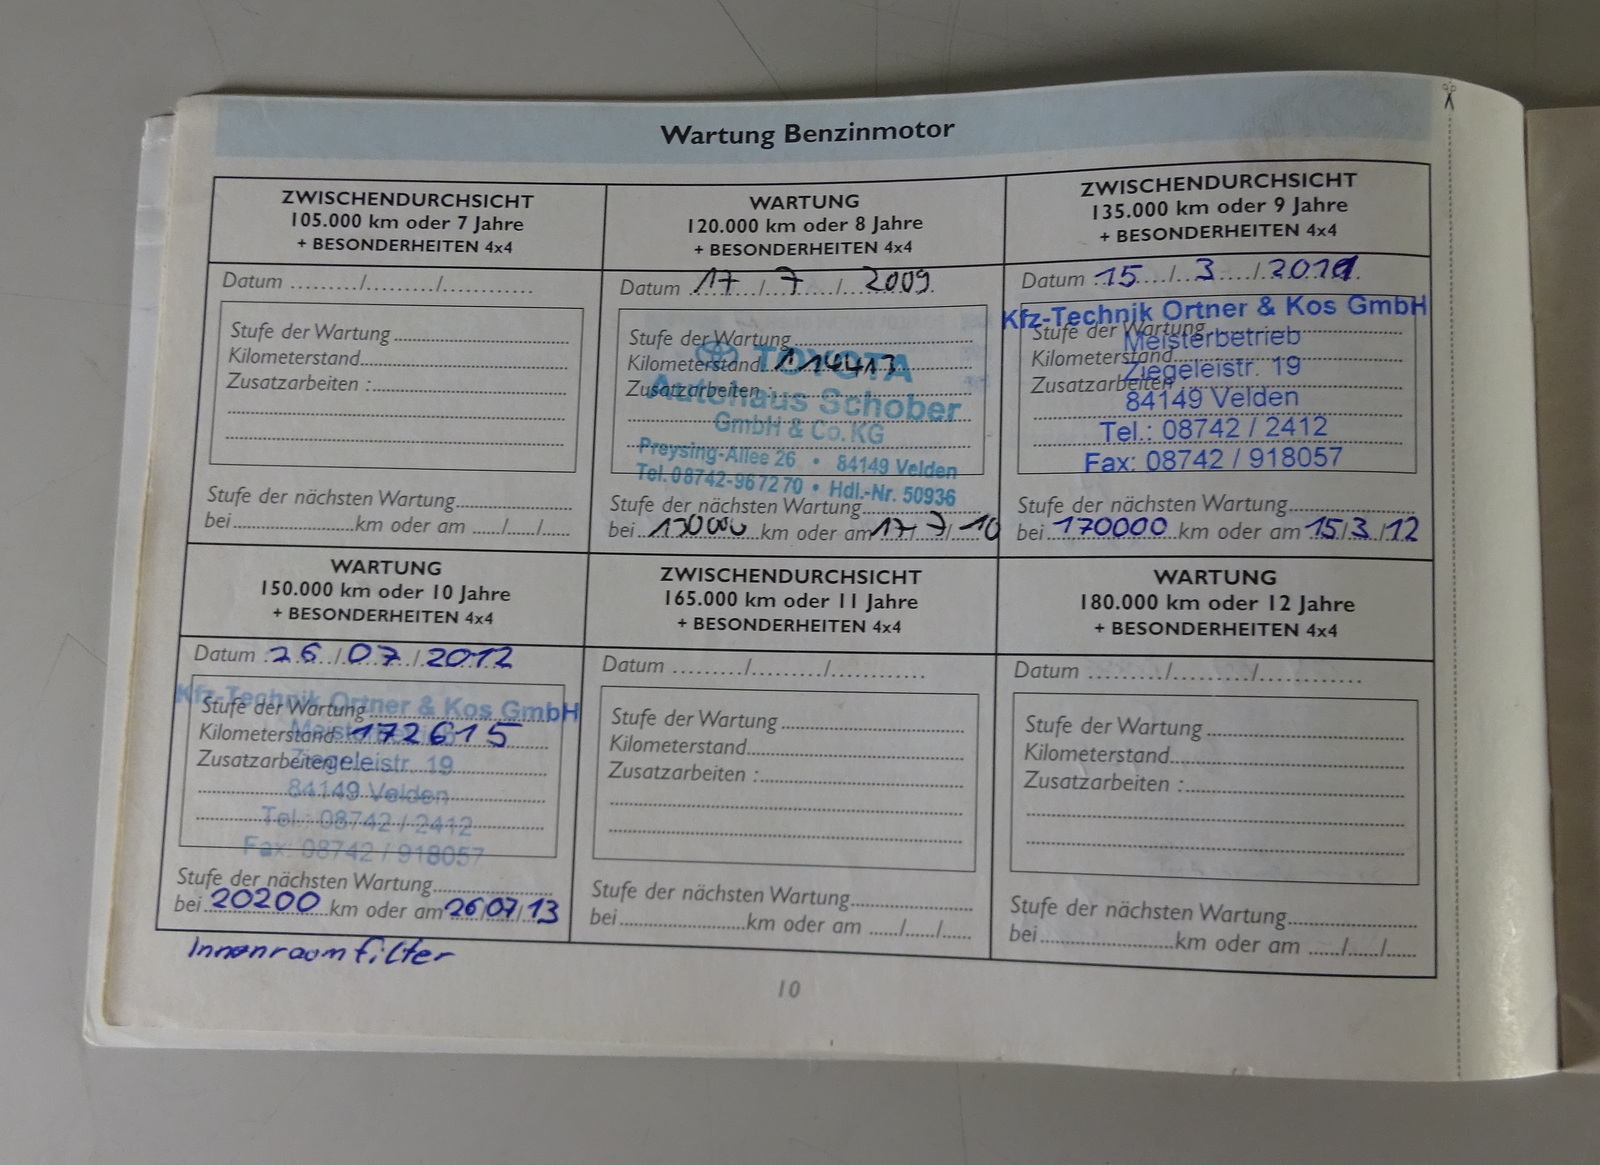 Wartung Benzinmotor
ZWISCHENDURCHSICHT
105.000 km oder 7 Jahre
+ BESONDERHEITEN 4x4
Datum ........./........../............
Stufe der Wartung
Kilometerstand
Zusatzarbeiten :
Stufe der nächsten Wartung
bei ........ km oder am ...../...../.....
WARTUNG
120.000 km oder 8 Jahre
+ BESONDERHEITEN 4x4
Datum 17 / 7 / 2009
Stufe der Wartung
Kilometerstand 114413
Zusatzarbeiten :
TOYOTA
Autohaus Schober
GmbH & Co. KG
Preysing-Allee 26 • 84149 Velden
Tel. 08742-967270 • Hdl.-Nr. 50936
Stufe der nächsten Wartung
bei 130000 km oder am 17 / 7 / 10
ZWISCHENDURCHSICHT
135.000 km oder 9 Jahre
+ BESONDERHEITEN 4x4
Datum 15 / 3 /
Kfz-Technik Ortner & Kos GmbH
Stufe der Wartung
Meisterbetrieb
Kilometerstand
Ziegeleistr. 19
Zusatzarbeiten
84149 Velden
Tel.: 08742 / 2412
Fax: 08742 / 918057
Stufe der nächsten Wartung
bei 170000 km oder am 15/3/12
WARTUNG
150.000 km oder 10 Jahre
+ BESONDERHEITEN 4x4
Datum 26 / 07 / 2012
Kfz-Technik Ortner & Kos GmbH
Stufe der Wartung
Meisterbetrieb
Kilometerstand 172615
Ziegeleistr. 19
Zusatzarbeiten
84149 Velden
Tel.: 08742 / 2412
Fax: 08742 / 918057
Stufe der nächsten Wartung
bei 20200 km oder am 26/07/13
Innenraumfilter
ZWISCHENDURCHSICHT
165.000 km oder 11 Jahre
+ BESONDERHEITEN 4x4
Datum ........./........../............
Stufe der Wartung
Kilometerstand
Zusatzarbeiten :
Stufe der nächsten Wartung
bei ........ km oder am ...../...../.....
WARTUNG
180.000 km oder 12 Jahre
+ BESONDERHEITEN 4x4
Datum ........./........../............
Stufe der Wartung
Kilometerstand
Zusatzarbeiten :
Stufe der nächsten Wartung
bei ........ km oder am ...../...../.....
10